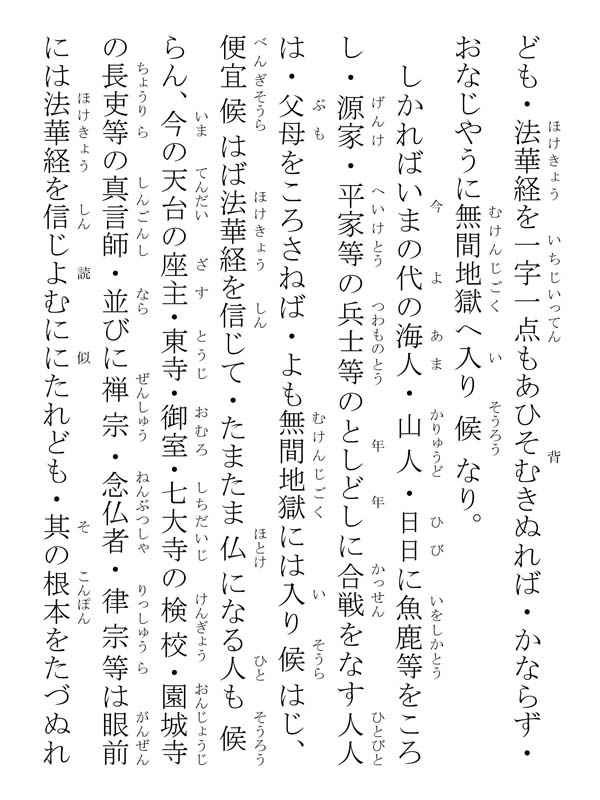 ども・法華経を一字一点もあひそむきぬれば・かならず・
おなじやうに無間地獄へ入り候なり。
しかればいまの代の海人・山人・日日に魚鹿等をころ
し・源家・平家等の兵士等のとしどしに合戦をなす人人
は・父母をころさねば・よも無間地獄には入り候はじ、
便宜候はば法華経を信じて・たまたま仏になる人も候
らん、今の天台の座主・東寺・御室・七大寺の検校・園城寺
の長吏等の真言師・並びに禅宗・念仏者・律宗等は眼前
には法華経を信じよむににたれども・其の根本をたづぬれ